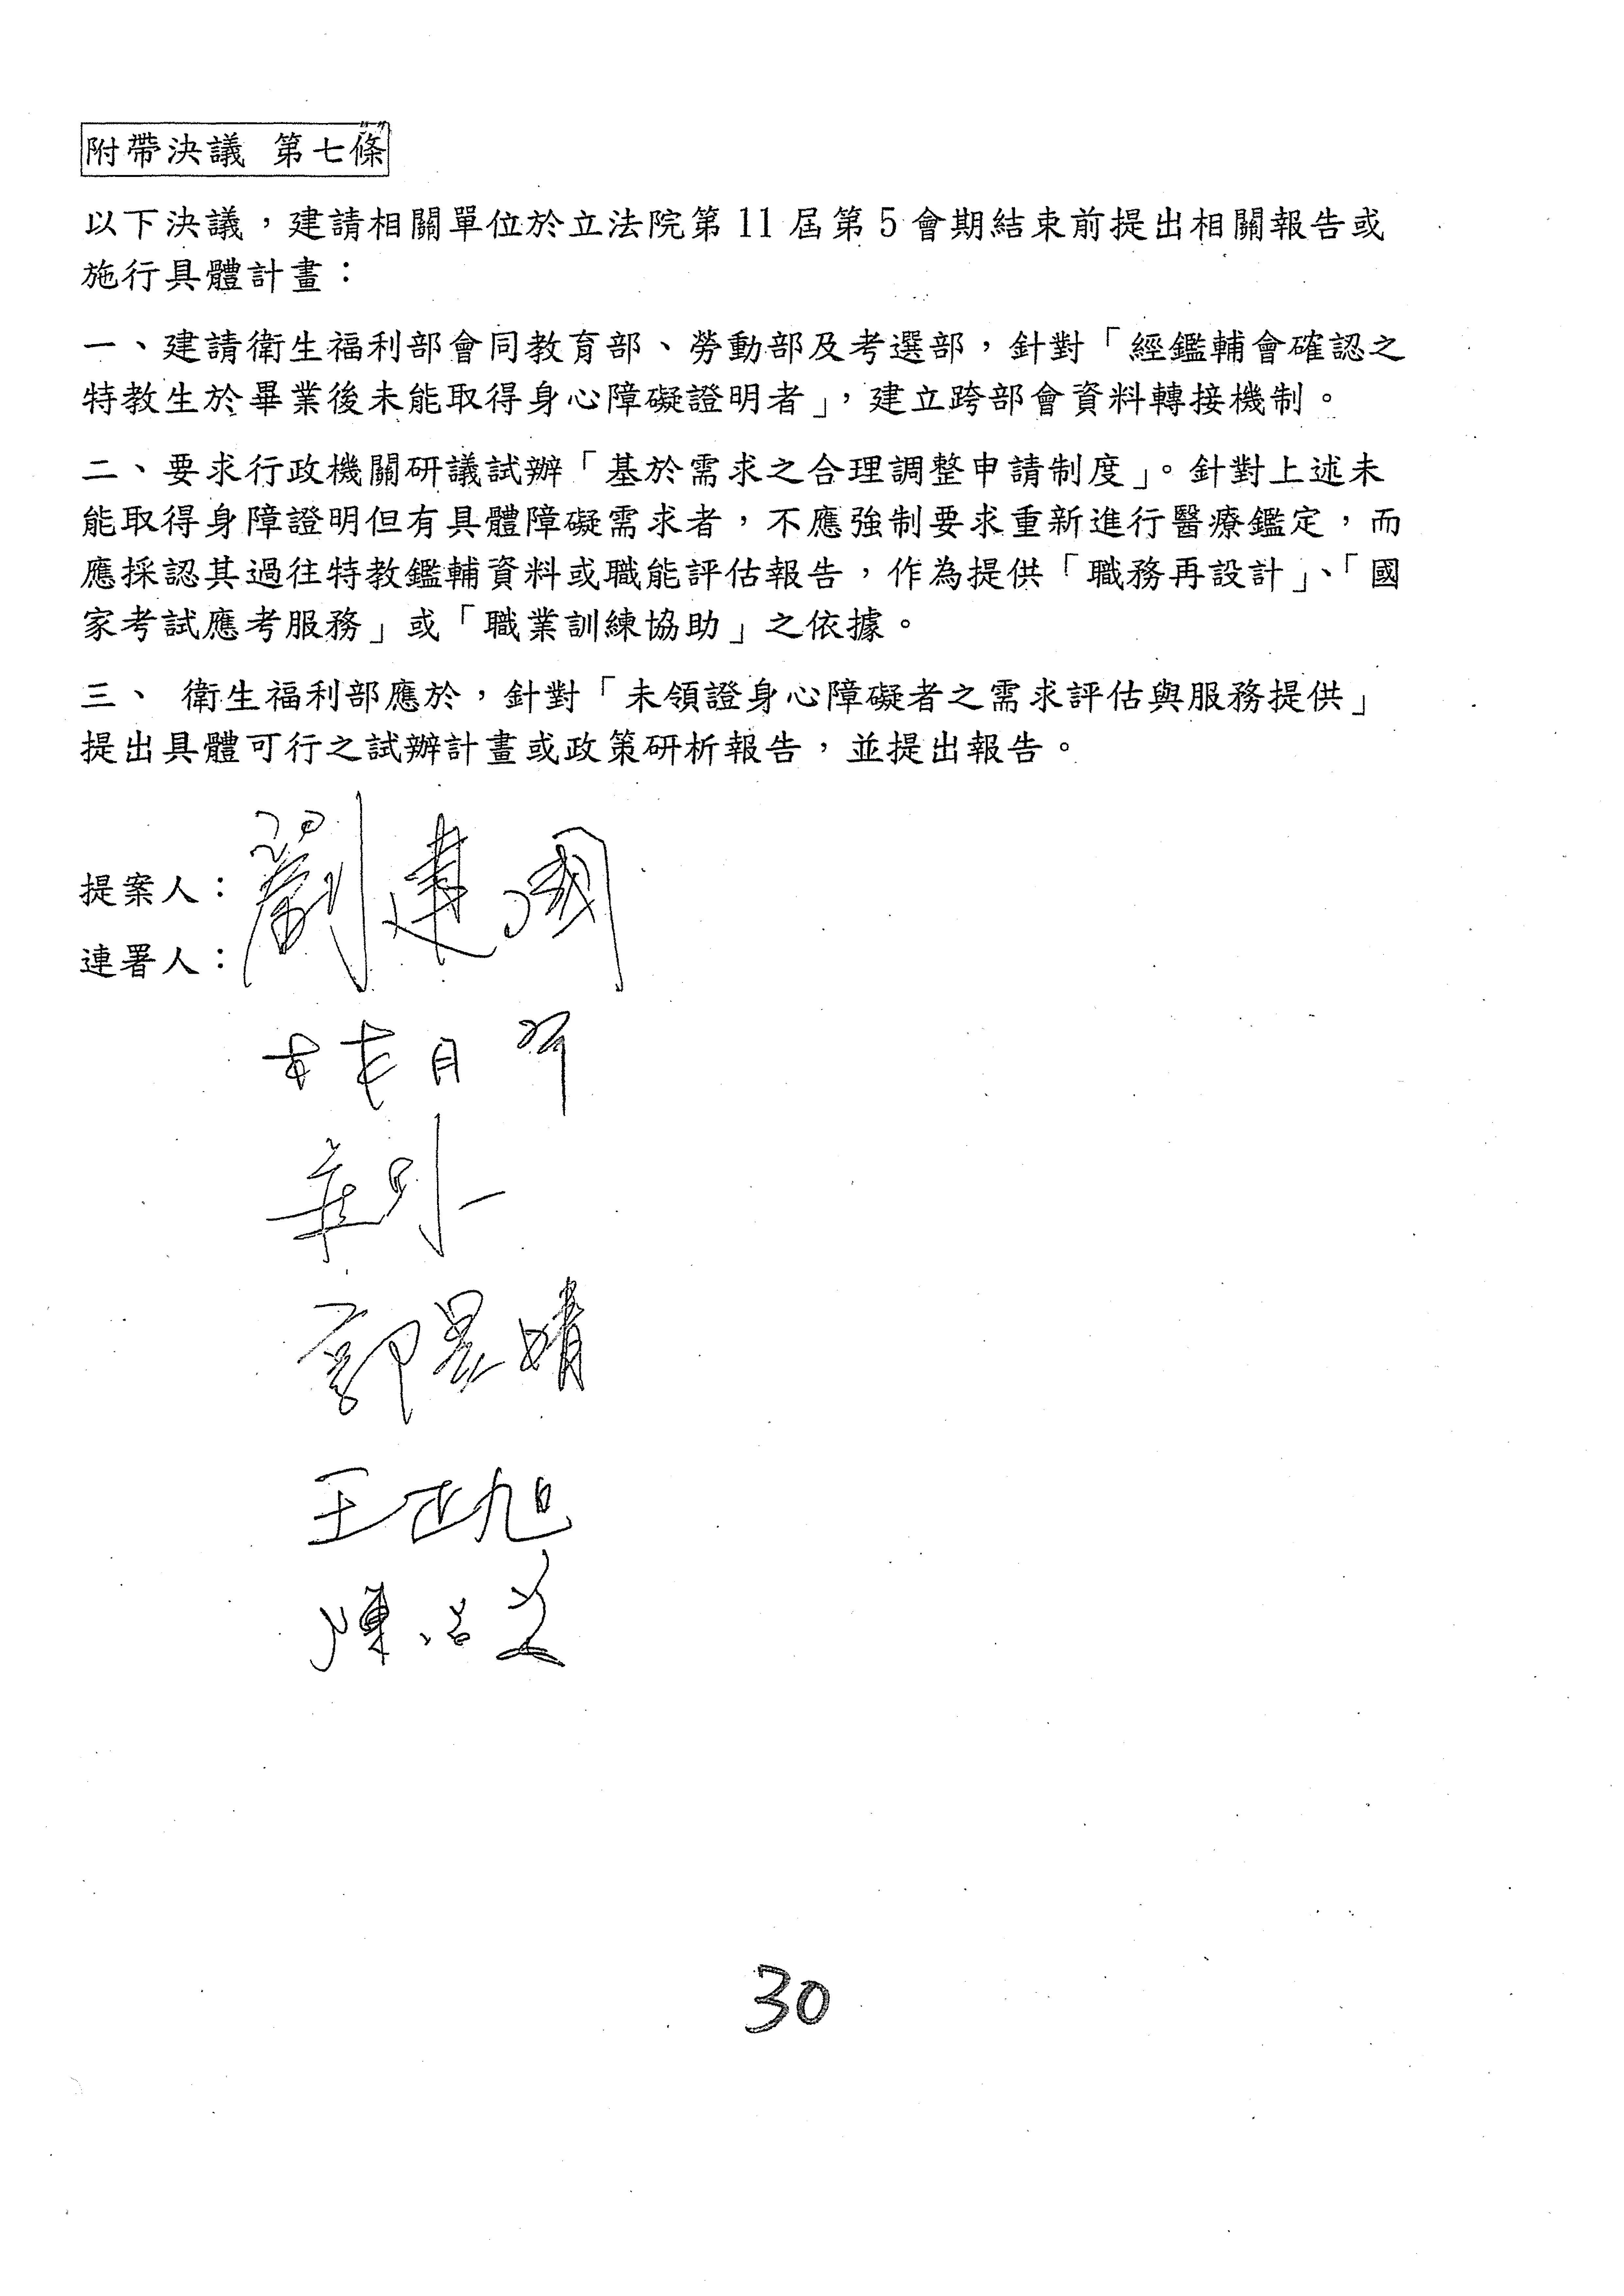 附帶決議 第七條
以下決議，建請相關單位於立法院第11屆第5會期結束前提出相關報告或
施行具體計畫：
一、建請衛生福利部會同教育部、勞動部及考選部，針對「經鑑輔會確認之
特教生於畢業後未能取得身心障礙證明者」，建立跨部會資料轉接機制。
二、要求行政機關研議試辦「基於需求之合理調整申請制度」。針對上述未
能取得身障證明但有具體障礙需求者，不應強制要求重新進行醫療鑑定，而
應採認其過往特教鑑輔資料或職能評估報告，作為提供「職務再設計」、「國
家考試應考服務」或「職業訓練協助」之依據。
三、 衛生福利部應於，針對「未領證身心障礙者之需求評估與服務提供」
提出具體可行之試辦計畫或政策研析報告，並提出報告。
提案人：劉建國
連署人：
林月琴
王正旭
30